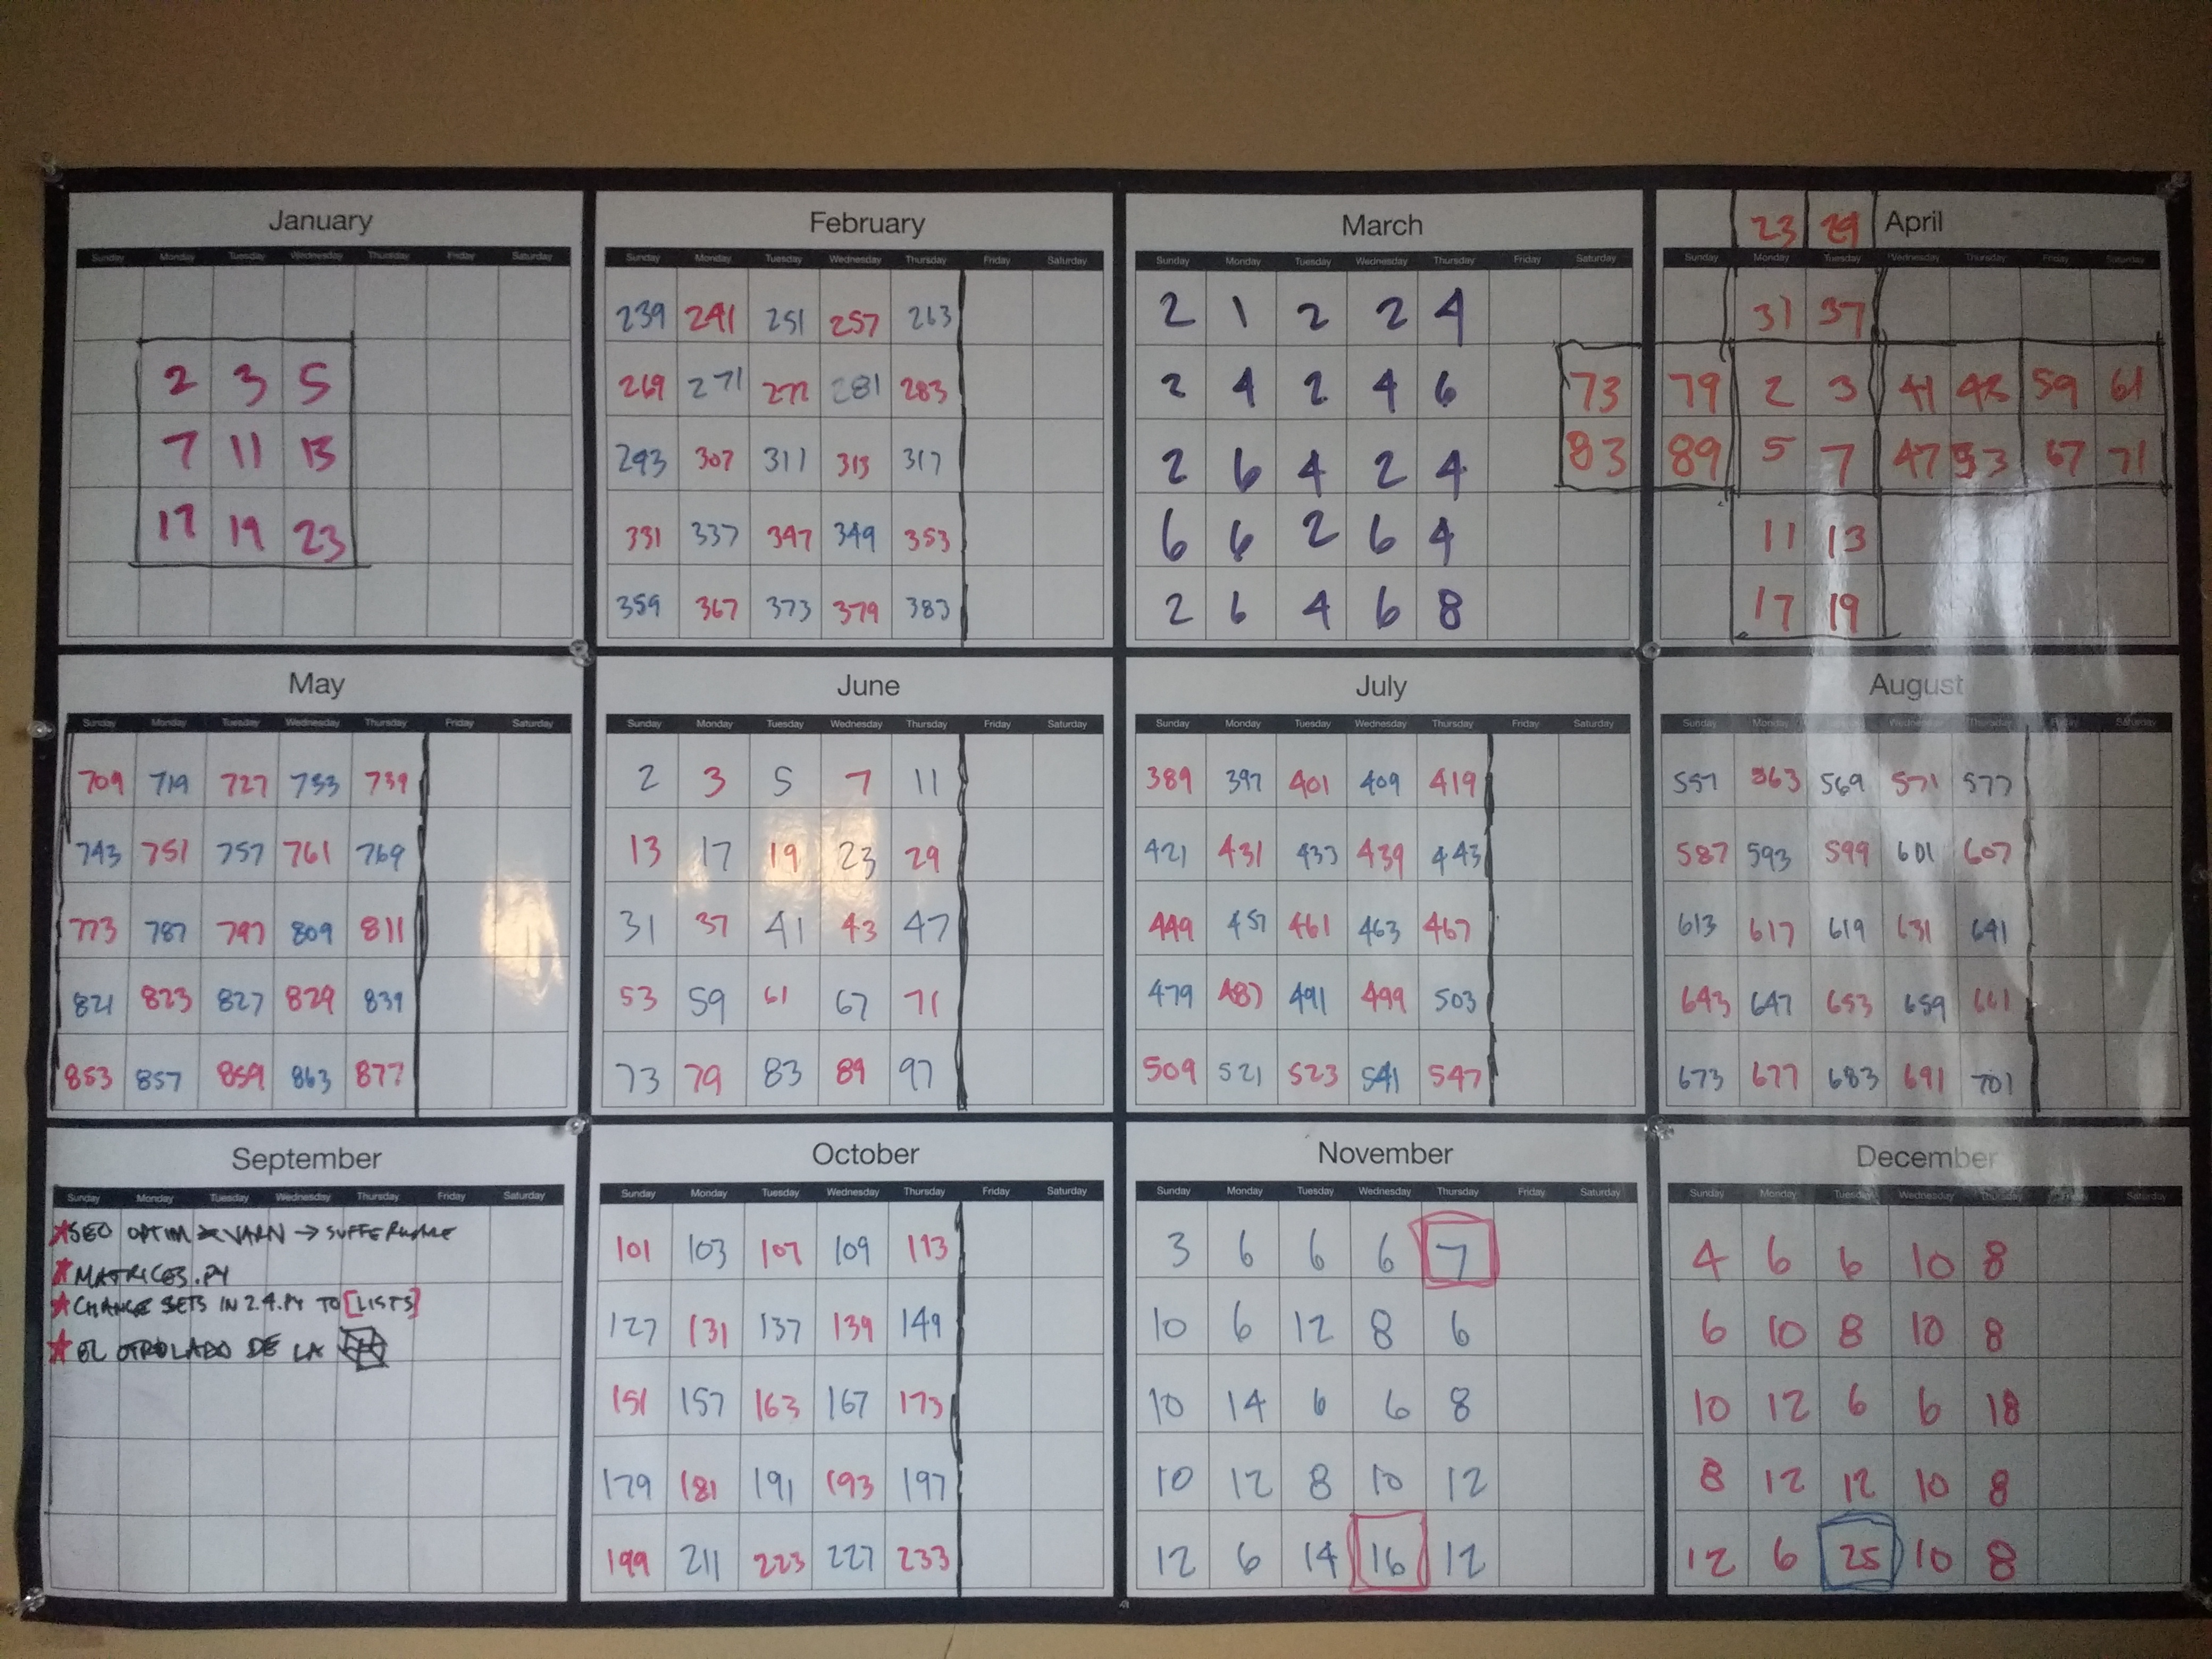 January
Sunday Monday Tuesday Wednesday Thursday Friday Saturday
2 3 5
7 11 13
17 19 23
February
Sunday Monday Tuesday Wednesday Thursday Friday Saturday
239 241 251 257 263
269 271 277 281 283
293 307 311 313 317
331 337 347 349 353
359 367 373 379 383
March
Sunday Monday Tuesday Wednesday Thursday Friday Saturday
2 1 2 2 4
2 4 2 4 6
2 6 4 2 4
6 6 2 6 4
2 6 4 6 8
23 29 April
Sunday Monday Tuesday Wednesday Thursday Friday Saturday
31 37
73 79 2 3 41 43 59 61
83 89 5 7 47 53 67 71
11 13
17 19
May
Sunday Monday Tuesday Wednesday Thursday Friday Saturday
709 719 727 733 739
743 751 757 761 769
773 787 797 809 811
821 823 827 829 839
853 857 859 863 877
June
Sunday Monday Tuesday Wednesday Thursday Friday Saturday
2 3 5 7 11
13 17 19 23 29
31 37 41 43 47
53 59 61 67 71
73 79 83 89 97
July
Sunday Monday Tuesday Wednesday Thursday Friday Saturday
389 397 401 409 419
421 431 433 439 443
449 457 461 463 467
479 487 491 499 503
509 521 523 541 547
August
Sunday Monday Tuesday Wednesday Thursday Friday Saturday
557 563 569 571 577
587 593 599 601 607
613 617 619 631 641
643 647 653 659 661
673 677 683 691 701
September
Sunday Monday Tuesday Wednesday Thursday Friday Saturday
SEO OPTIM VARN →
MATRICES.PY
CHANGE SETS IN 2.4.PY TO [LISTS]
EL OTRO LADO DE LA
October
Sunday Monday Tuesday Wednesday Thursday Friday Saturday
101 103 107 109 113
127 131 137 139 149
151 157 163 167 173
179 181 191 193 197
199 211 223 227 233
November
Sunday Monday Tuesday Wednesday Thursday Friday Saturday
3 6 6 6 7
10 6 12 8 6
10 14 6 6 8
10 12 8 10 12
12 6 14 16 12
December
Sunday Monday Tuesday Wednesday Thursday Friday Saturday
4 6 6 10 8
6 10 8 10 8
10 12 6 6 18
8 12 12 10 8
12 6 25 10 8